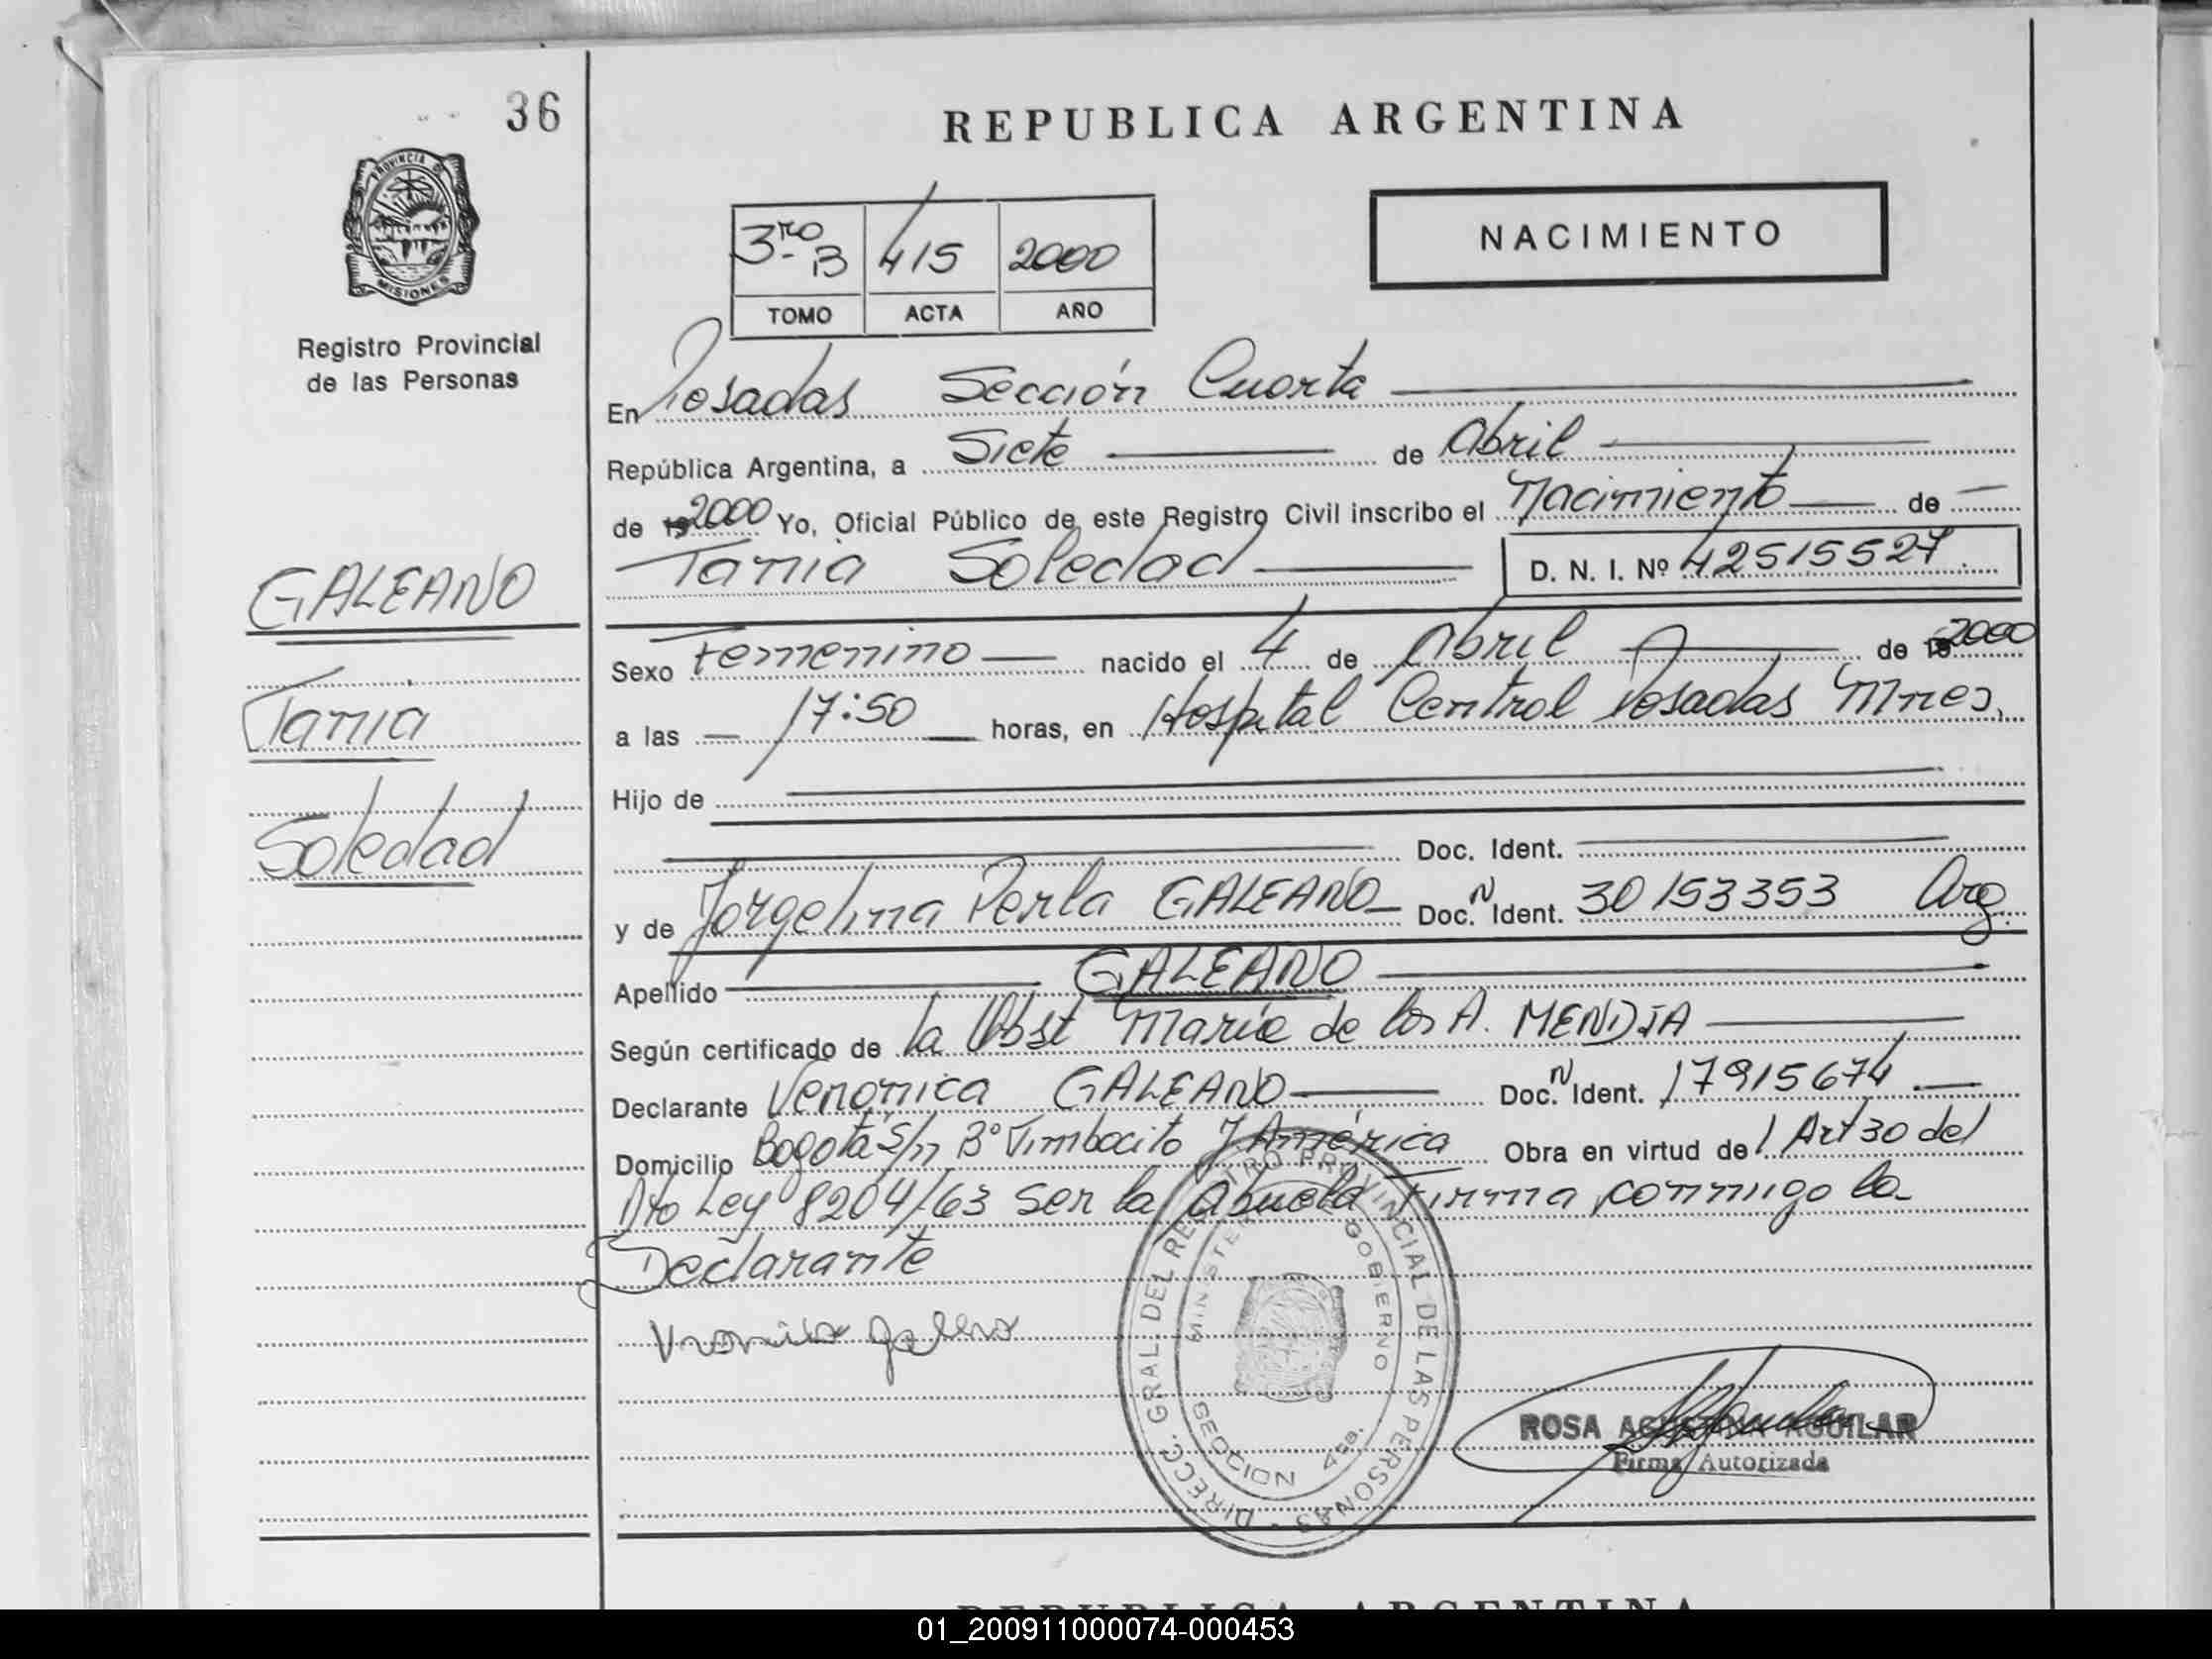 36
PROVINCIA D
MISIONES
Registro Provincial
de las Personas
GALEANO
Tania
Soledad
REPUBLICA ARGENTINA
3ro B 415 2000
TOMO ACTA AÑO
NACIMIENTO
En Posadas Sección Cuarta
República Argentina, a Siete de Abril
de 19 2000 Yo, Oficial Público de este Registro Civil inscribo el Nacimiento de
Tania Soledad D. N. I. Nº 42515527.
Sexo Femenino nacido el 4 de Abril de 19 2000
a las 17:50 horas, en Hospital Central Posadas Mnes.
Hijo de
Doc. Ident.
y de Jorgelina Perla GALEANO Doc. N Ident. 30153353 Arg.
Apellido GALEANO
Según certificado de la Obst María de los A. MENDIA
Declarante Veronica GALEANO Doc. N Ident. 17915674.
Domicilio Bogotá s/n Bº Timbocito J América Obra en virtud del Art 30 del
Dto Ley 8204/63 ser la abuela Firma conmigo la
Declarante
DIRECC. GRAL. DEL REGISTRO PROVINCIAL DE LAS PERSONAS
MINISTE GOBIERNO
SECCION 4ta.
ROSA AGUSTINA AGUILAR
Firma Autorizada
REPUBLICA ARGENTINA
01_200911000074-000453